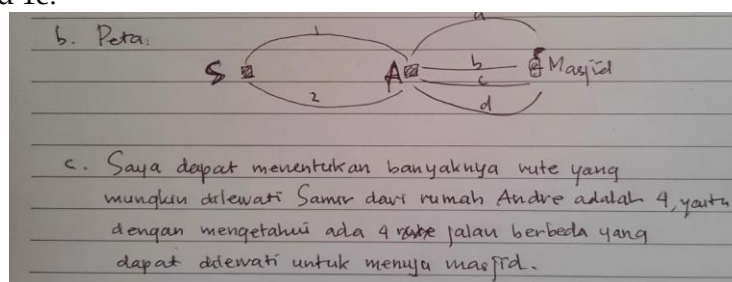 a 1c.
b. Peta:
1 a
S A b Masjid
c
2 d
c. Saya dapat menentukan banyaknya rute yang
mungkin dilewati Samir dari rumah Andre adalah 4, yaitu
dengan mengetahui ada 4 jalan berbeda yang
dapat dilewati untuk menuju masjid.